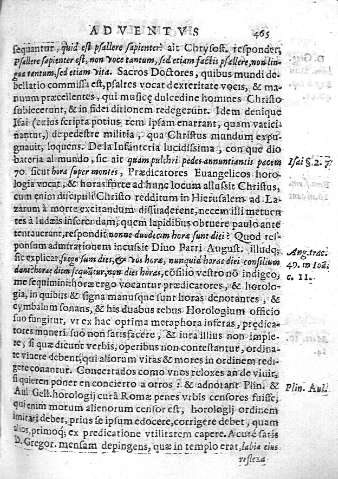 ADVENTVS 465
sequantur, quid est psallere sapienter? ait Chrysost. responder,
Psallere sapienter est, non voce tantum, sed etiam factis psallere, non lin
gua tantum, sed etiam vita. Sacros Doctores, quibus mundi de-
bellatio commissa est, psaltes vocat dexteritate vocis, & ma
nuum præcellentes, qui musicę dulcedine homines Christo
subiecerunt, & in fidei ditionem redegerunt. Idem denique
Isai (eius scripta potius rem ipsam enarrant, quam vatici-
nantur,) de pedestre militia, qua Christus mundum expu-
gnauit, loquens. De la Infanteria lucidissima, con que dio
bateria al mundo, sic ait quam pulchri pedes annuntiantis pacem
70. sicut hora super montes, Prædicatores Euangelicos horo-
logia vocat, & horas forte ad hunc locum allussit Christus,
cum enim discipuli Christo redditum in Hierusalem ad La-
zarum à morte excitandum dissuaderent, necem illi metum
ex à Iudæis inferendam, quem lapidibus obruere paulo ante
tentauerunt, respondit nonne duodecim horæ sunt diei? Quod res-
ponsum admirationem incusit Diuo Patri August. illudq;
sic explicat, si ego sum dies, & vos horæ, nunquid horæ diei consilium
dant? horæ diem sequūtur, non dies horas, cōsilio vestro nō indigeo,
me sequimini: horæ ergo vocantur prædicatores, & horolo-
gia, in quibus & signa manusque sunt horas denotantes, &
cymbalum sonans, & his duabus rebus Horologium officio
suo fungitur, vt ex hac optima metaphora inferas, prædica-
tores muneri suo non satisfacere, & iura illius non imple-
re, si quæ dicunt verbis, operibus non contestantur, ordina-
te viuere debent, qui aliorum vitas & mores in ordinem redi-
gere conantur. Concertados como vnos reloxes an de viuir,
si quieren poner en concierto a otros: & adnotant Plin. &
Aul Gell. horologij curā Romæ penes vrbis censores fuisse,
qui enim morum alienorum censor est, horologij ordinem
imitari debet, prius se ipsum edocere, corrigere debet, quam
alios, primoq; ex prædicatione vtilitatem capere. Acutè satis
D. Gregor. mensam depingens, quæ in templo erat, labia eius
reflexa
Isai §. 2. 7.
Aug. trac.
49. in Ioā.
c. 11.
Plin. Aul.